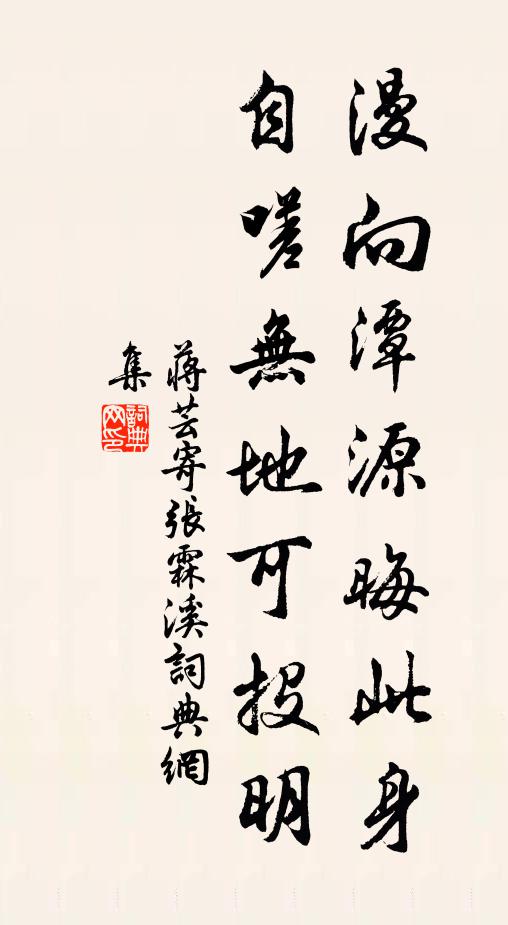 漫向潭源晦此身
自嗟無地可投明
蔣芸寄張霖溪詞典網
集
詞典网印